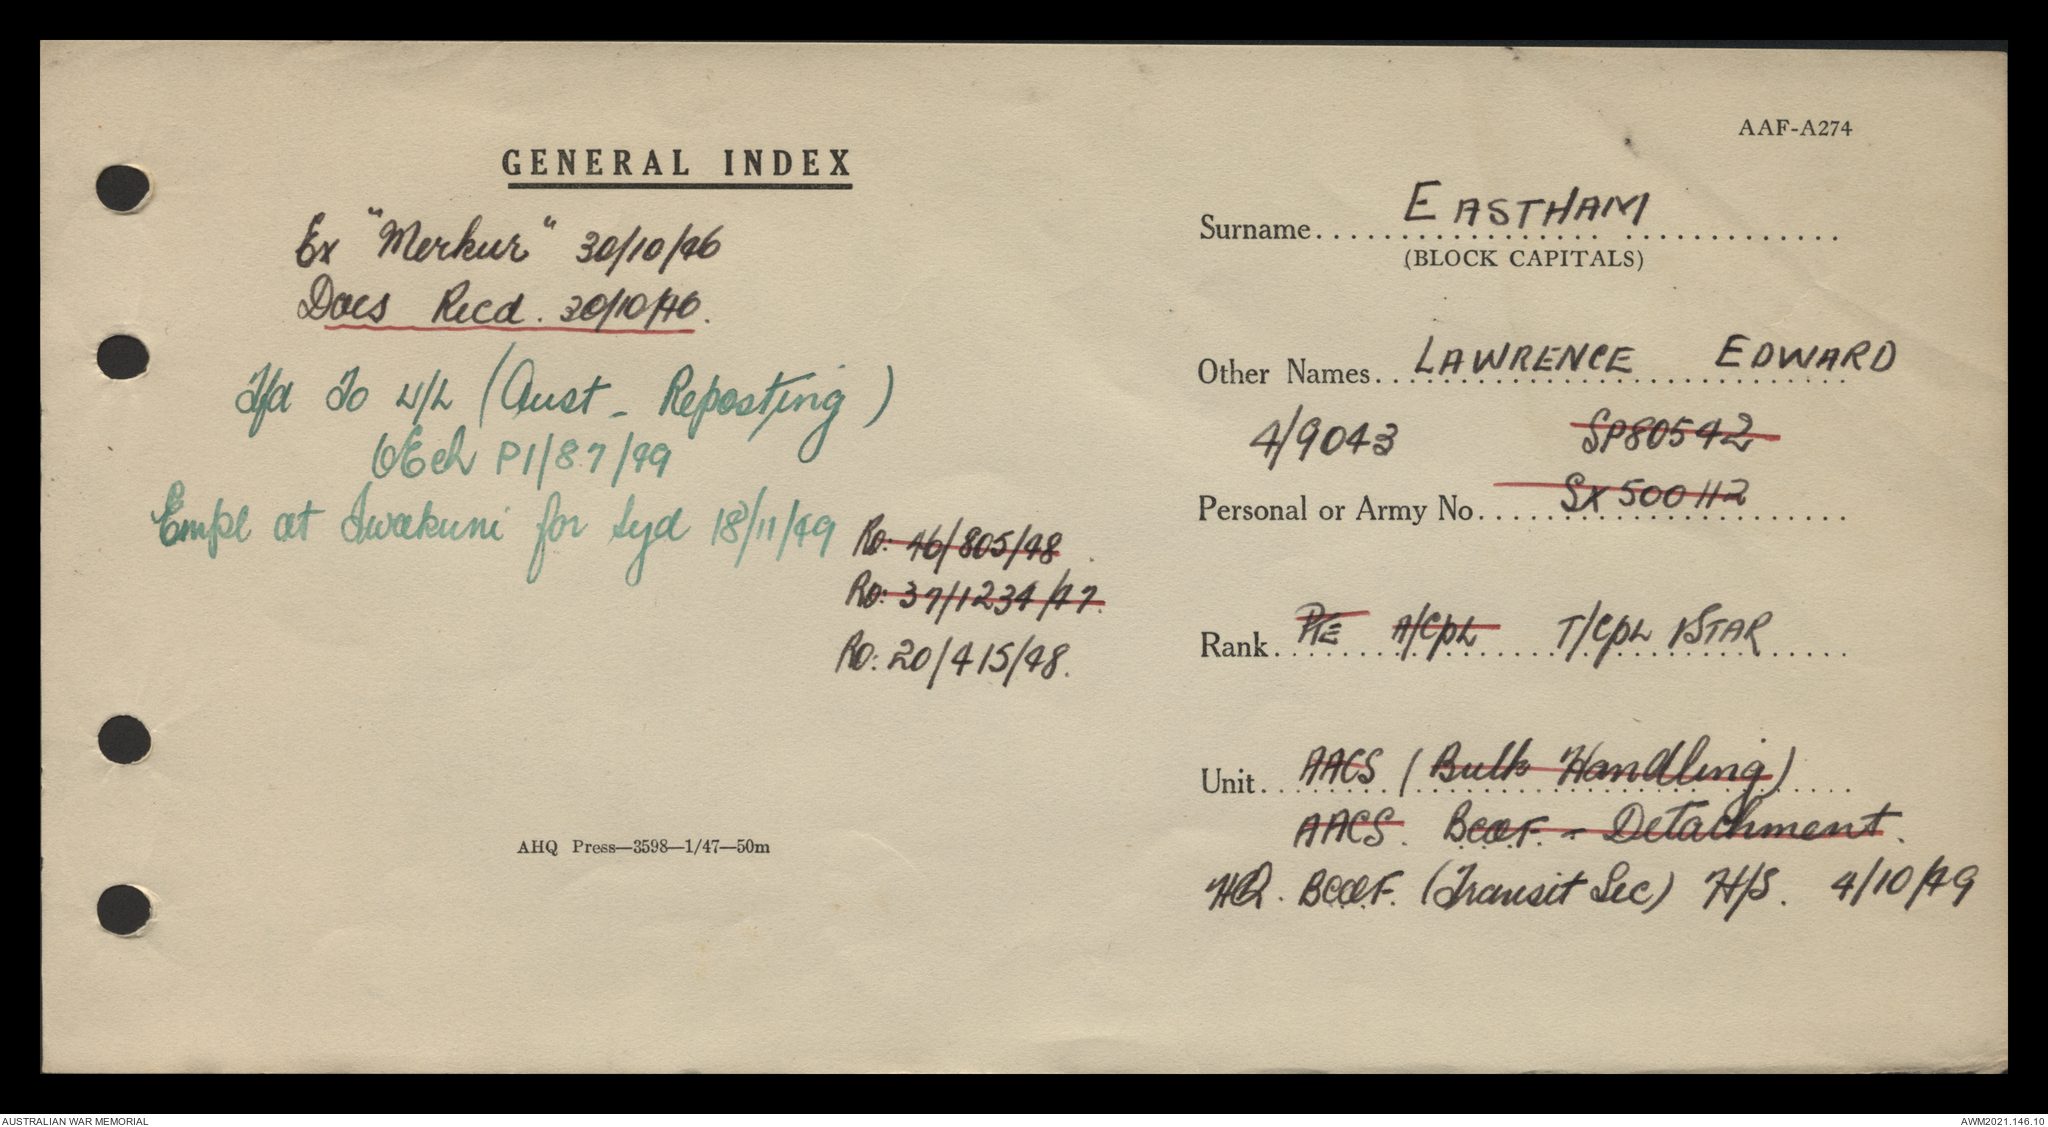 AAF-A274
GENERAL INDEX
Ex "Merkur" 30/10/46
Docs Recd. 30/10/46.
Tfd To L/L (Aust - Reposting)
OEch P1/87/49
Empl at Iwakuni for Syd 18/11/49
Ro: 46/805/48
Ro: 37/1234/47.
Ro: 20/415/48.
AHQ Press—3598—1/47—50m
Surname EASTHAM
(BLOCK CAPITALS)
Other Names LAWRENCE EDWARD
4/9043 SP80542
Personal or Army No. SX500112
Rank PTE A/CPL T/CPL 1STAR
Unit AACS (Bulk Handling)
AACS. BCOF - Detachment.
HQ. BCOF. (Transit Sec) H/S. 4/10/49
AUSTRALIAN WAR MEMORIAL
AWM2021.146.10